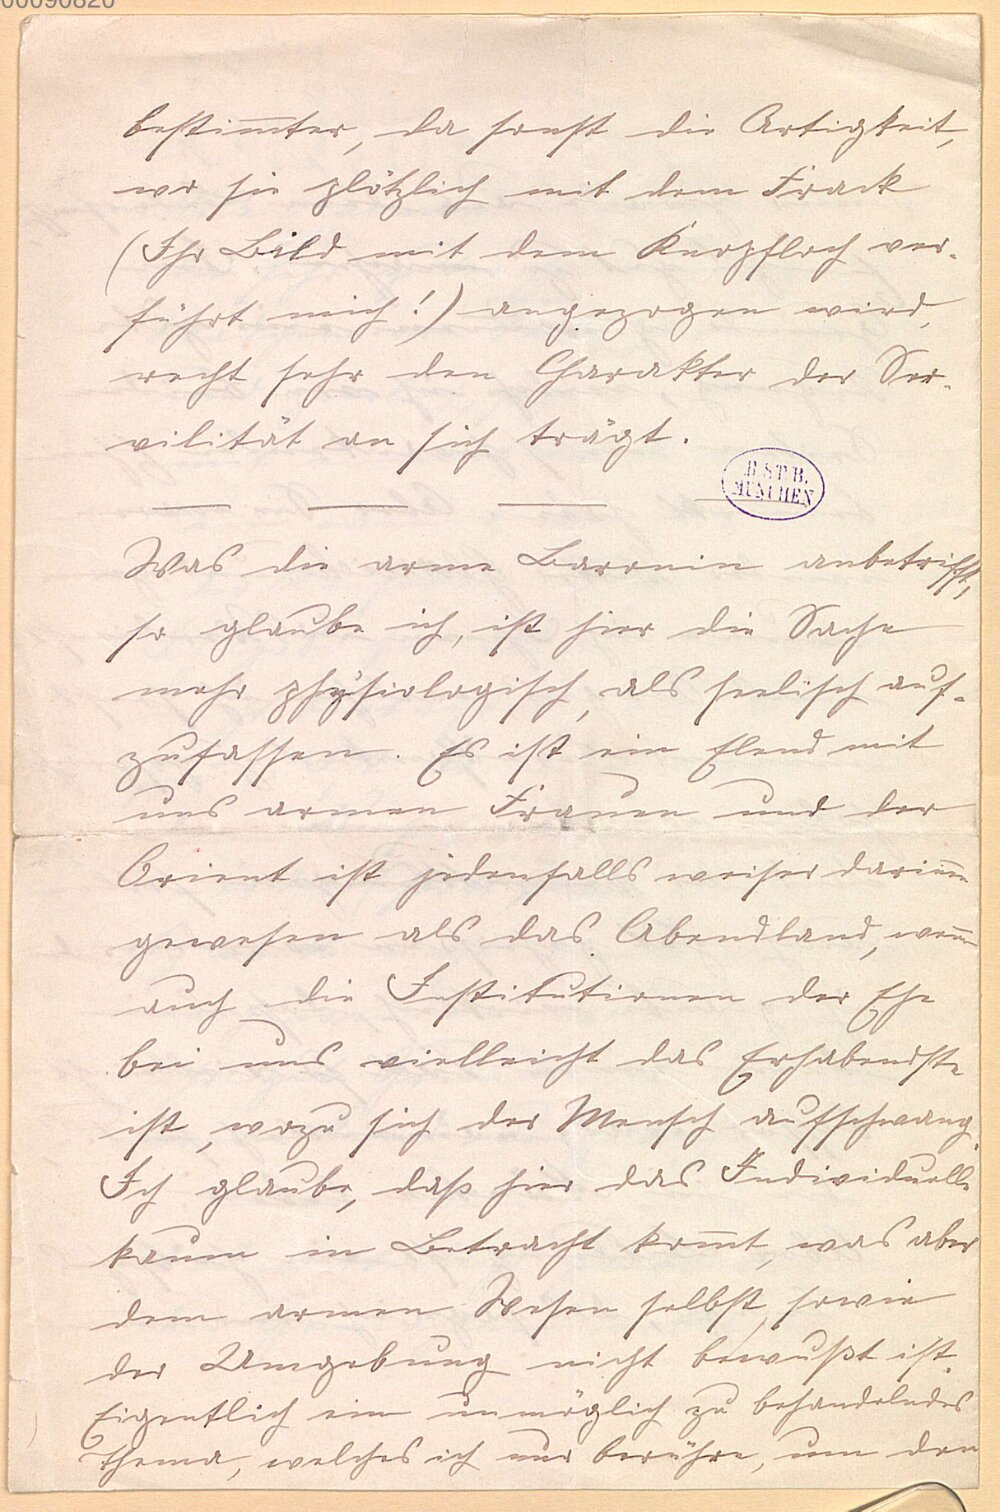 00090820
bestimmter, da sonst die Artigkeit,
wo sie plötzlich mit dem Frack
(Ihr Bild mit dem Knopfloch ver-
führt mich!) angezogen wird,
recht sehr den Charakter der Ser-
vilität an sich trägt.
B.ST.B.
MÜNCHEN
Was die arme Baronin anbetrifft,
so glaube ich, ist hier die Sache
mehr physiologisch, als seelisch auf-
zufassen. Es ist ein Elend mit
uns armen Frauen und der
Orient ist jedenfalls weiser darinnen
gewesen als das Abendland, wenn
auch die Institutionen der Ehe
bei uns vielleicht das Erhabendste
ist, wozu sich der Mensch aufschwang.
Ich glaube, daß hier das Individuelle
kaum in Betracht kommt, was aber
dem armen Wesen selbst, sowie
der Umgebung nicht bewußt ist.
Eigentlich ein unmöglich zu behandelndes
Thema, welches ich nur berühre, um den